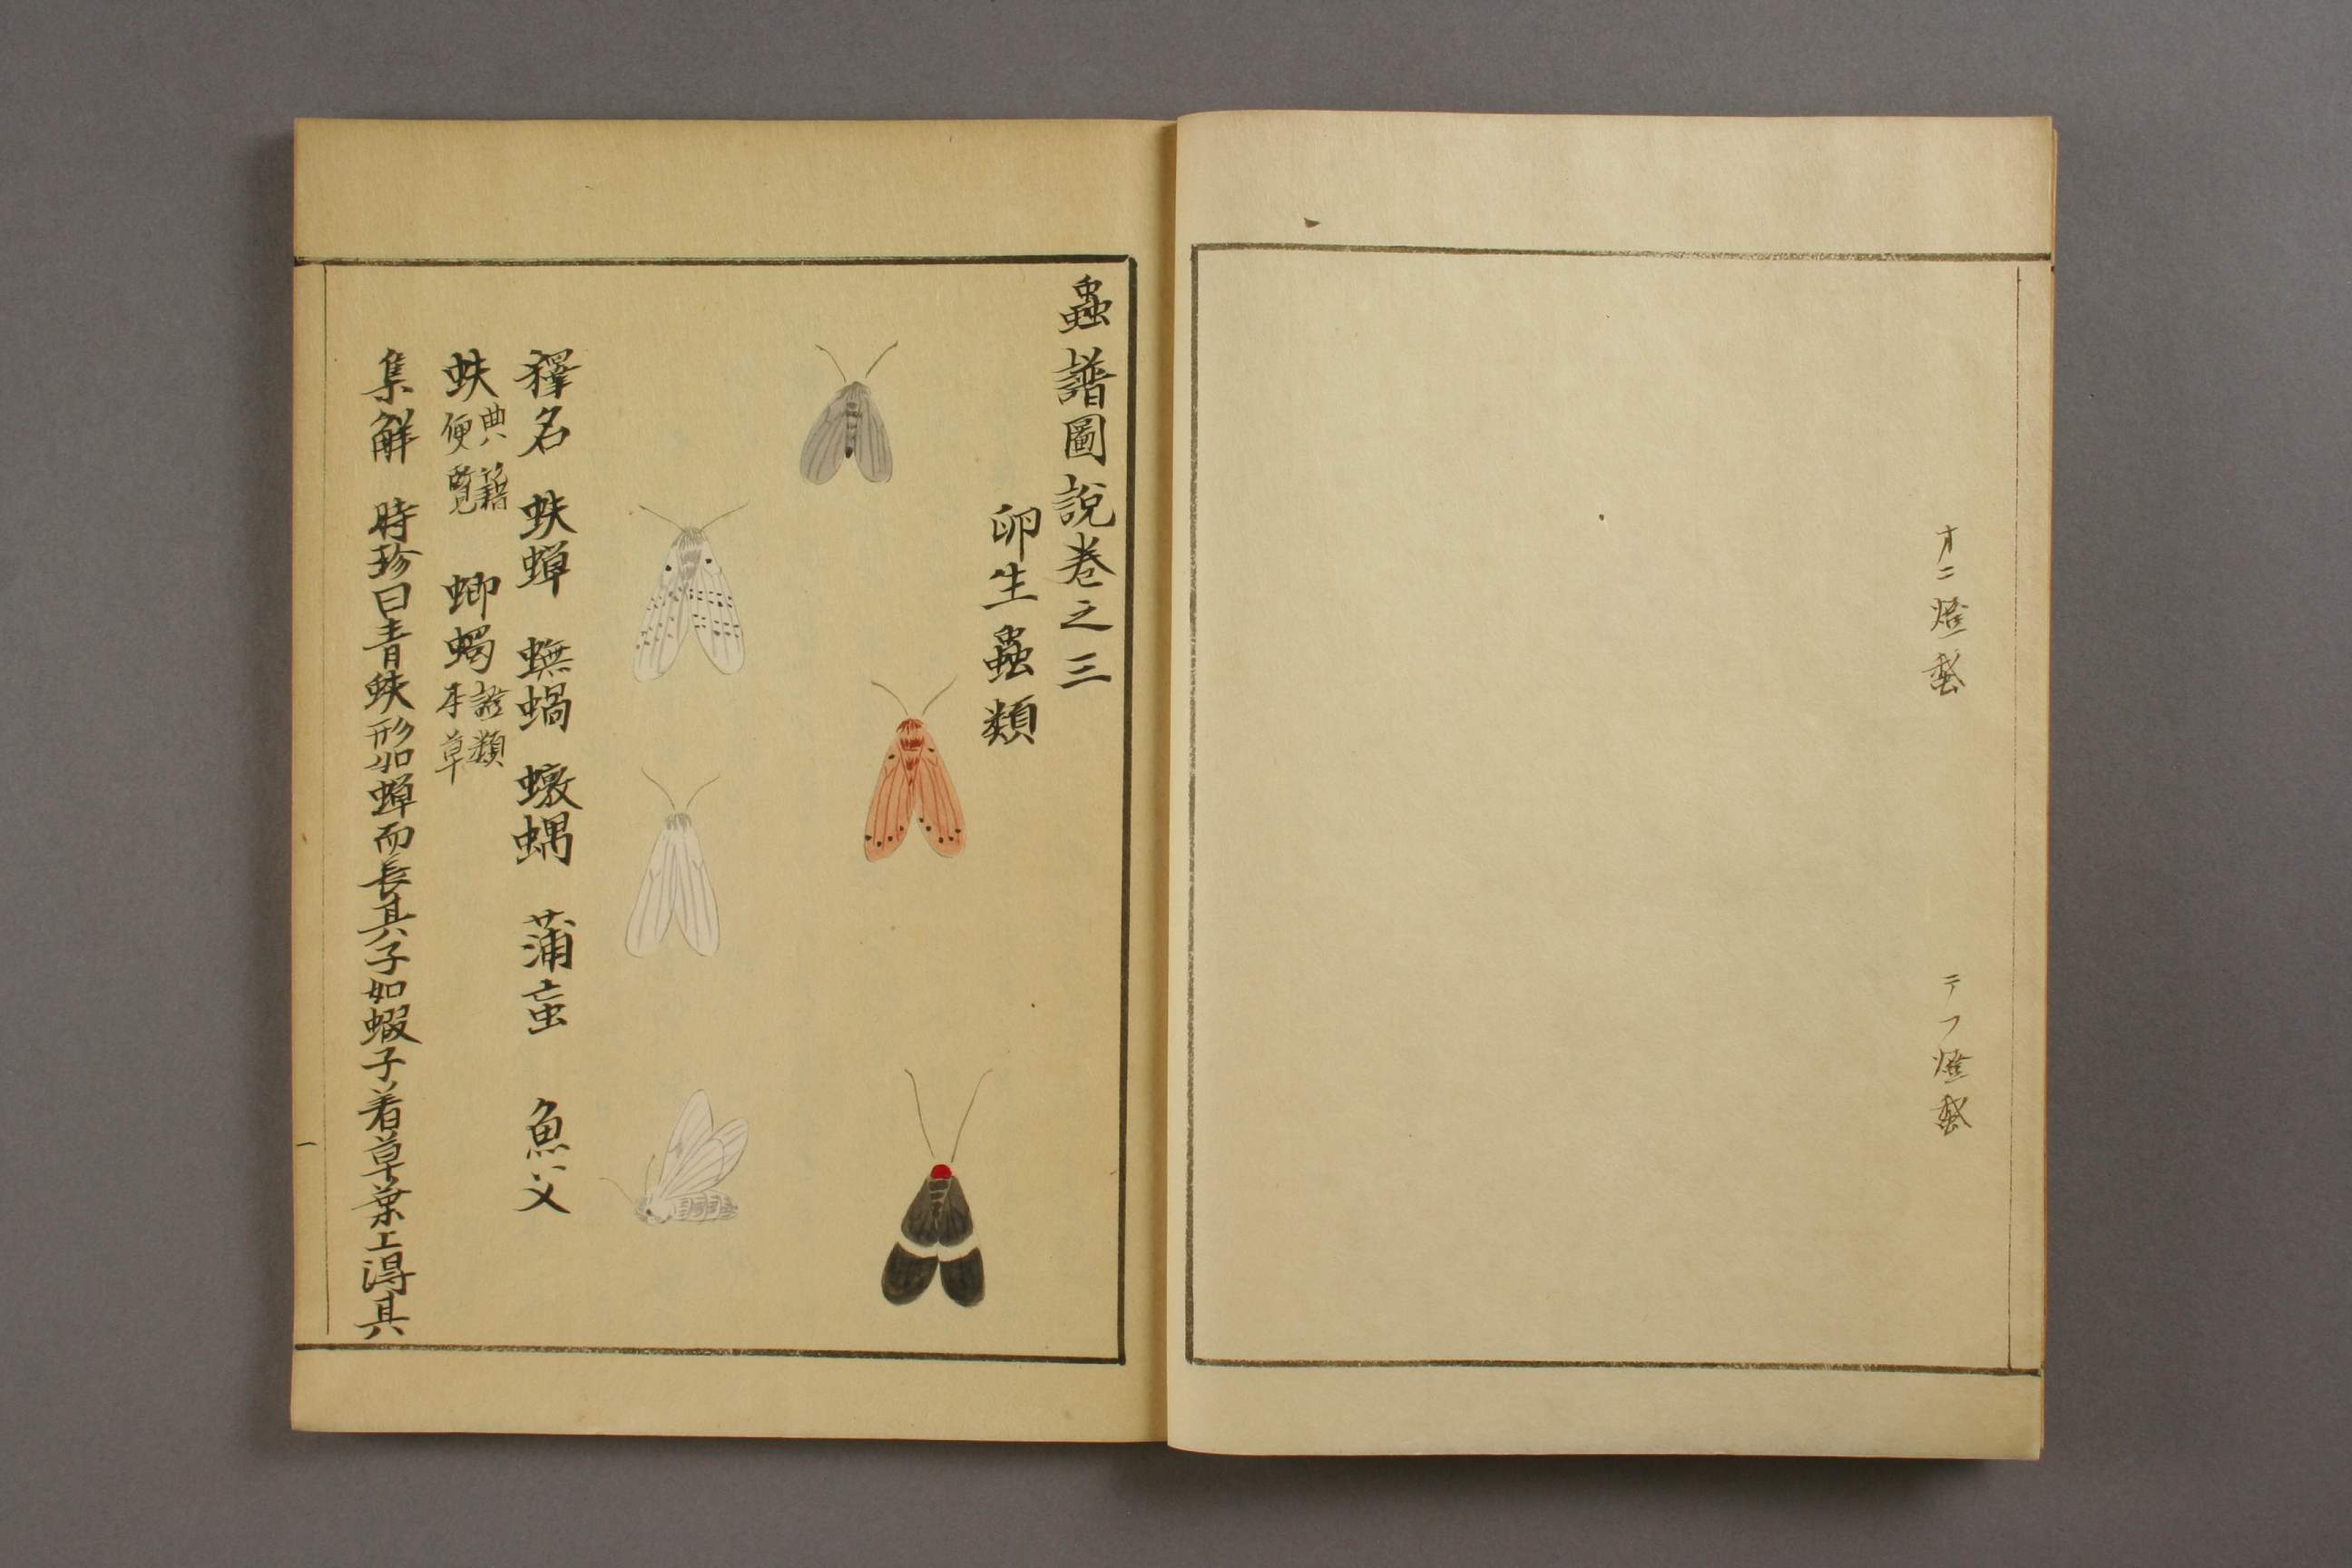 オニ燈蛾
テフ燈蛾
蟲譜圖說卷之三
卵生蟲類
釋名　蚨蟬　蟱蝸　蠍蝺　蒲䖟　魚父
蚨典籍便覧　蝍蠋證類本草
集解　時珍曰青蚨形如蟬而長其子如蝦子着草葉上得其